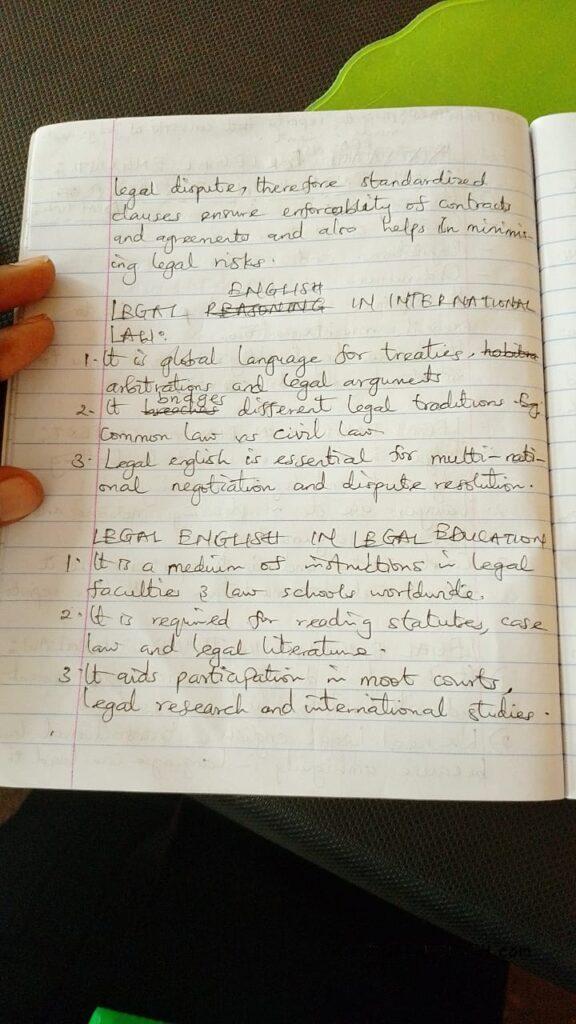 legal dispute, therefore standardized
clauses ensure enforceablity of contracts
and agreements and also helps in minimis-
ing legal risks.
ENGLISH
LEGAL REASONING IN INTERNATIONAL
LAW:
1. It is global language for treaties,
arbitrations and legal arguments
bridges
2. It breaches different legal traditions e.g.
Common law vs civil law
3. Legal english is essential for multi-nati-
onal negotiation and dispute resolution.
LEGAL ENGLISH IN LEGAL EDUCATION
1. It is a medium of instructions in legal
faculties & law schools worldwide.
2. It is required for reading statutes, case
law and legal literature.
3. It aids particapation in moot courts,
legal research and international studies.